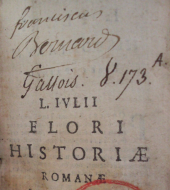 franciscus
Bernard
Gallois. 8. 173. A.
L. IVLII
FLORI
HISTORIÆ
ROMANÆ